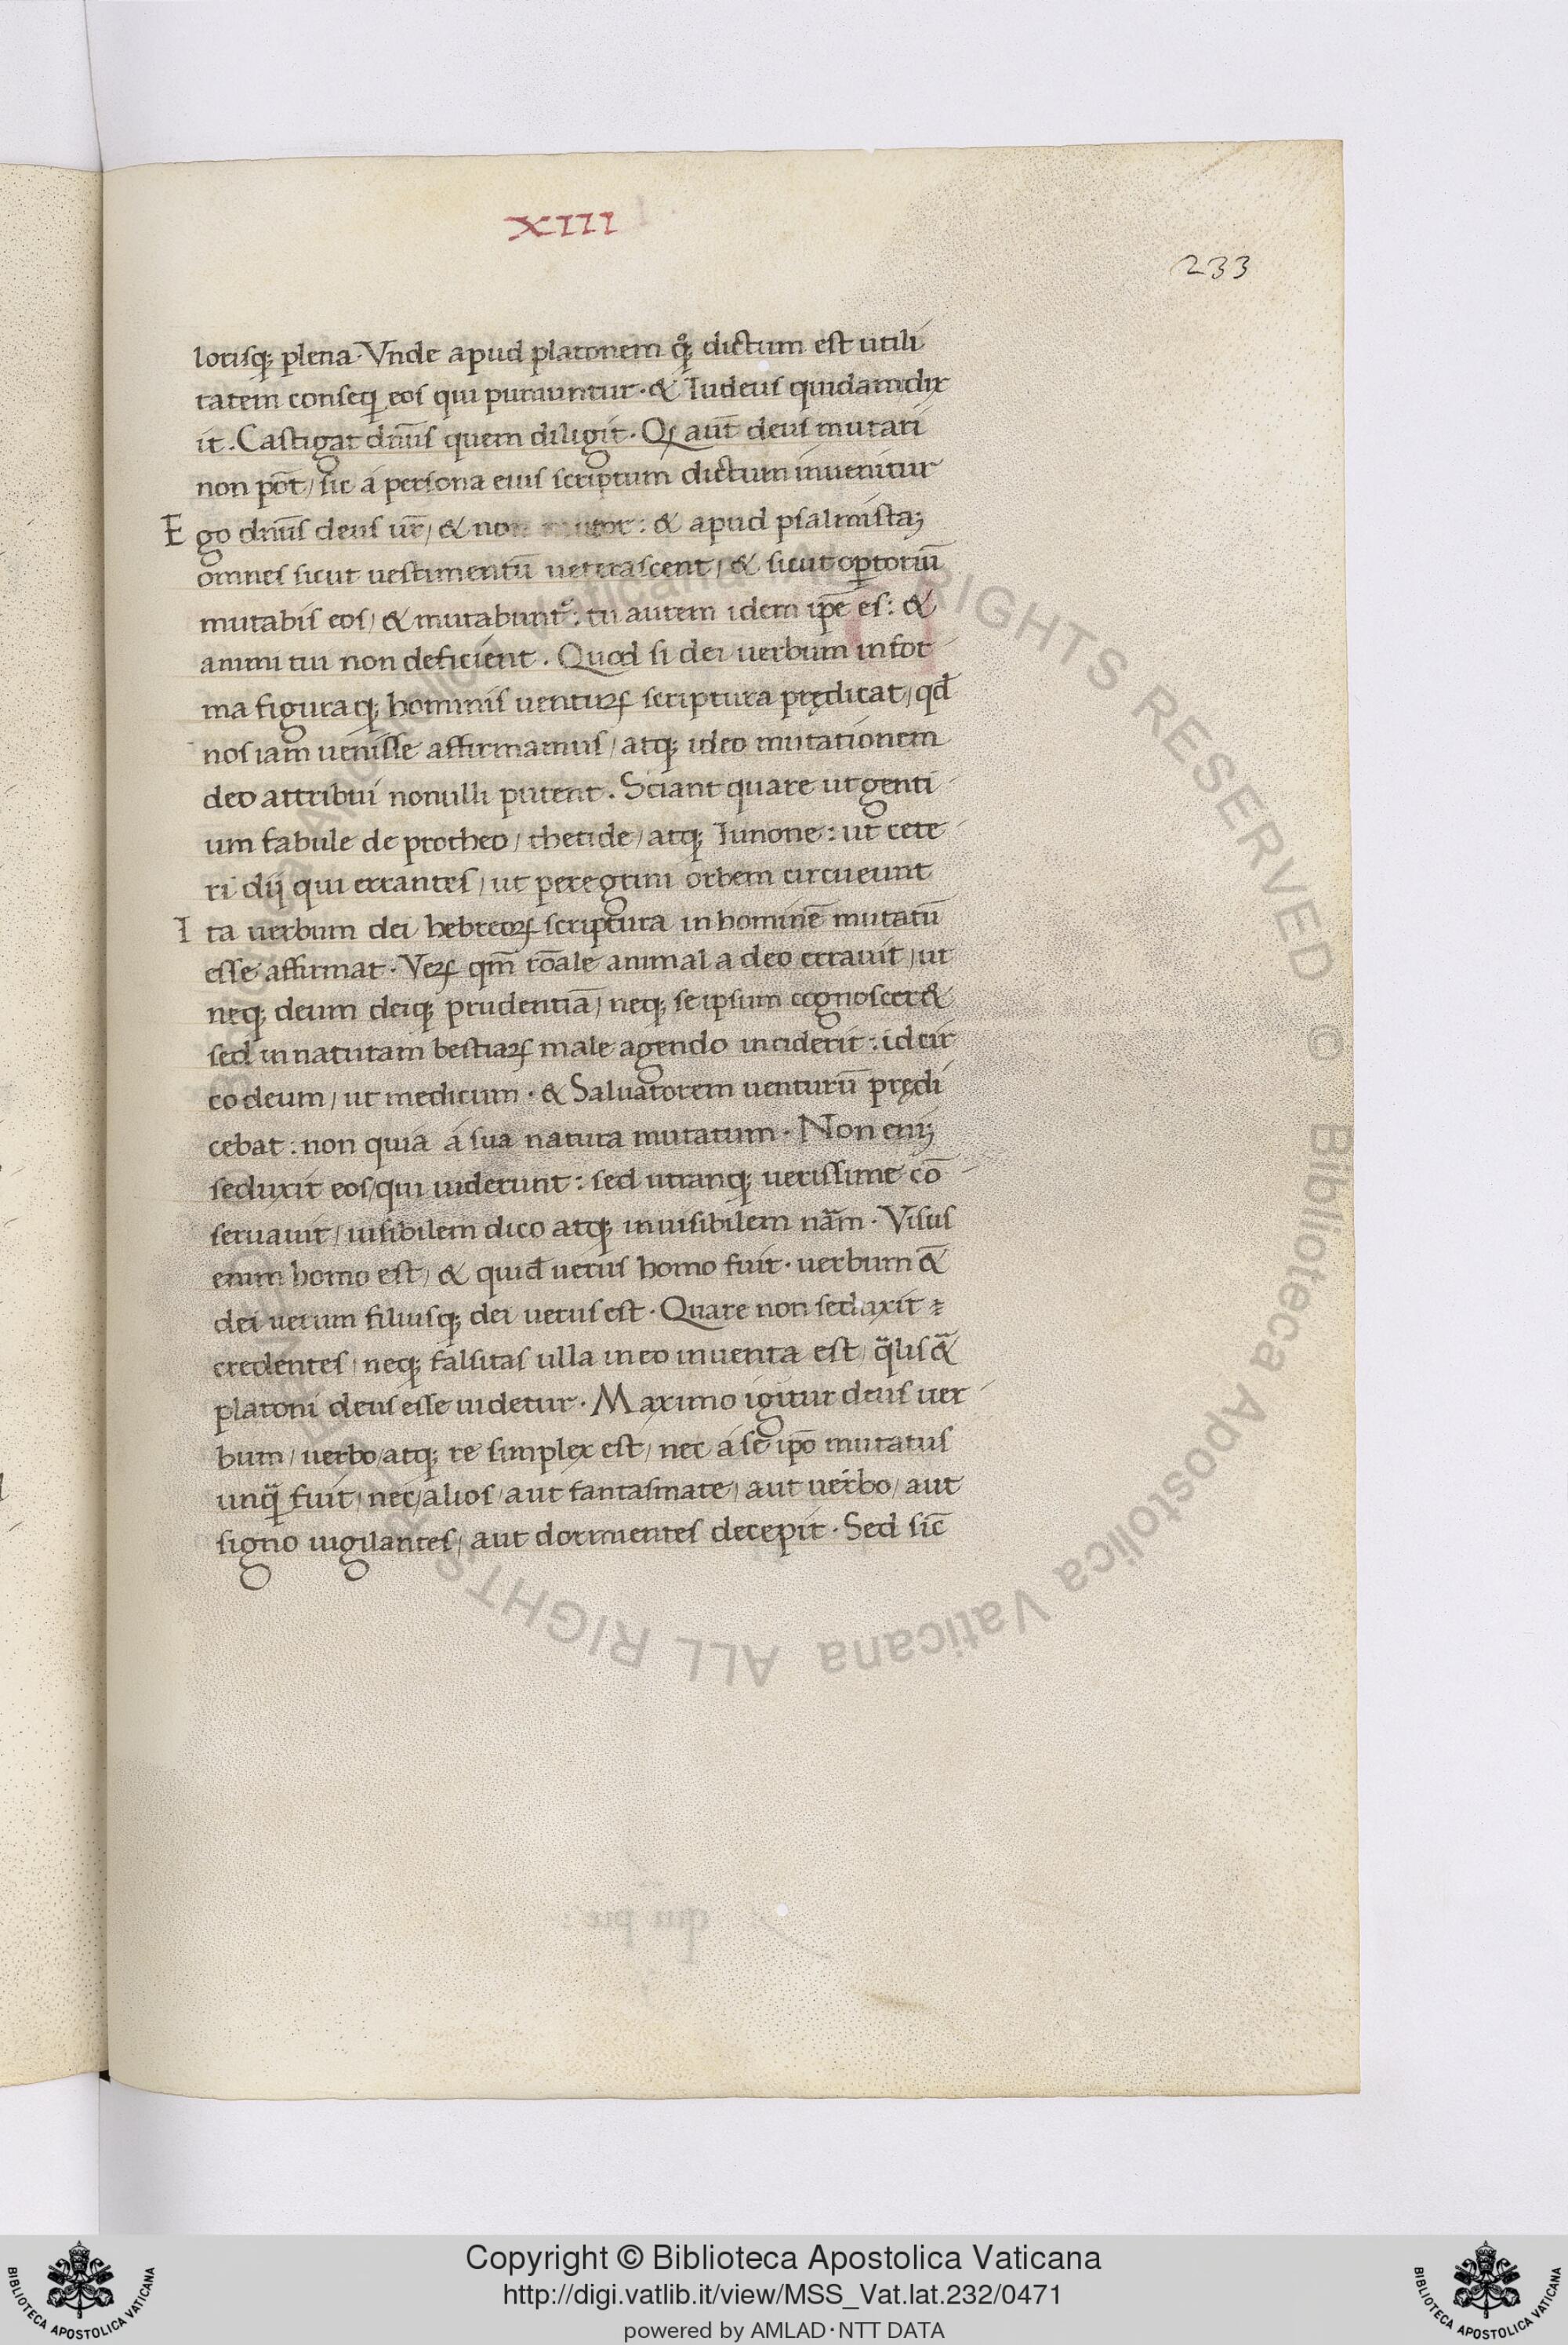 XIII
233
lorisq; plena. Vnde apud platonem qꝫ dictum est utili
tatem conseq eos qui puniuntur. & Iudeus quidam dix
it. Castigat dn̄us quem diligit. Qꝫ aut̄ deus mutari
non pōt/ sic á persona eius scriptum dictum inuenitur
Ego dn̄us deus ur̄/ & non mutor: & apud psalmistaꝫ
omnes sicut uestimentū ueterascent/ & sicut optoriū
mutabis eos/ & mutabunt᷑: tu autem idem ip̄e es: &
anni tui non deficient. Quod si dei uerbum in for
ma figuraq; hominis uenturꝝ scriptura prędicat/ qd̄
nos iam uenisse affirmamus/ atq; ideo mutationem
deo attribui nonulli putent. Sciant quare ut genti
um fabule de protheo/ thetide/ atq; Iunone: ut cete
ri dij qui errantes/ ut peregrini orbem circueunt
Ita uerbum dei hebreorꝝ scriptura in hominē mutatū
esse affirmat. Verꝝ qm̄ rōale animal a deo errauit/ ut
neq; deum deiq; prudentiā/ neq; se ipsum cognoscer&
sed in naturam bestiarꝝ male agendo inciderit: idcir
co deum/ ut medicum. & Saluatorem uenturū prędi
cebat: non quia á sua natura mutatum. Non eniꝫ
seduxit eos/ qui uiderunt: sed utranq; uerissime cō
seruauit/ uisibilem dico atq; inuisibilem nām. Visus
enim homo est/ & quid̄ uerus homo fuit. uerbum &̄
dei uerum filiusq; dei uerus est. Quare non seduxit
credentes/ neq; falsitas ulla in eo inuenta est/ q̈lis &̈
platoni deus esse uidetur. Maximo igitur deus uer
bum/ uerbo/ atq; re simplex est/ nec á se ip̄o mutatus
unq̈ fuit/ nec/ alios/ aut fantasmate/ aut uerbo/ aut
signo uigilantes/ aut dormientes decepit. Sed sic̄
Copyright © Biblioteca Apostolica Vaticana
http://digi.vatlib.it/view/MSS_Vat.lat.232/0471
powered by AMLAD·NTT DATA